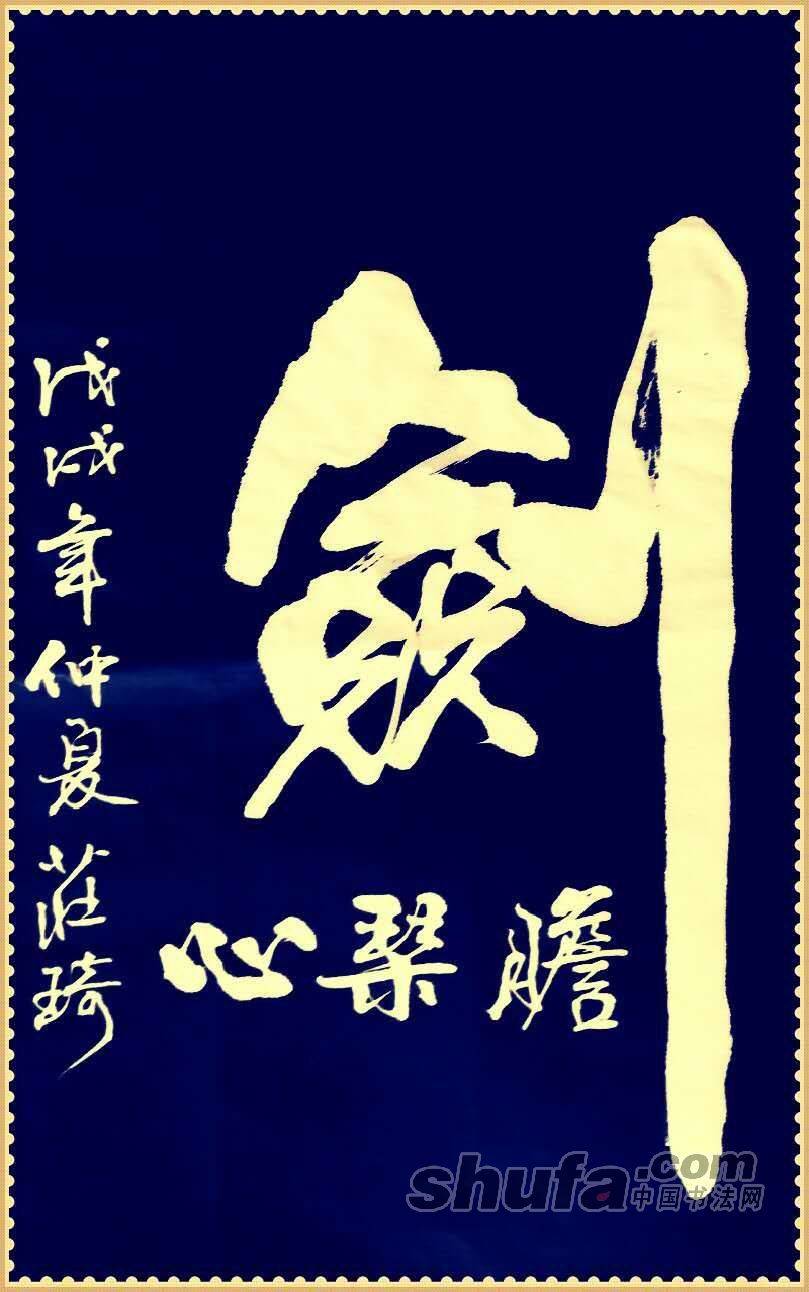 劍
膽琴心
戊戌年仲夏莊琦
shufa.com
中国书法网